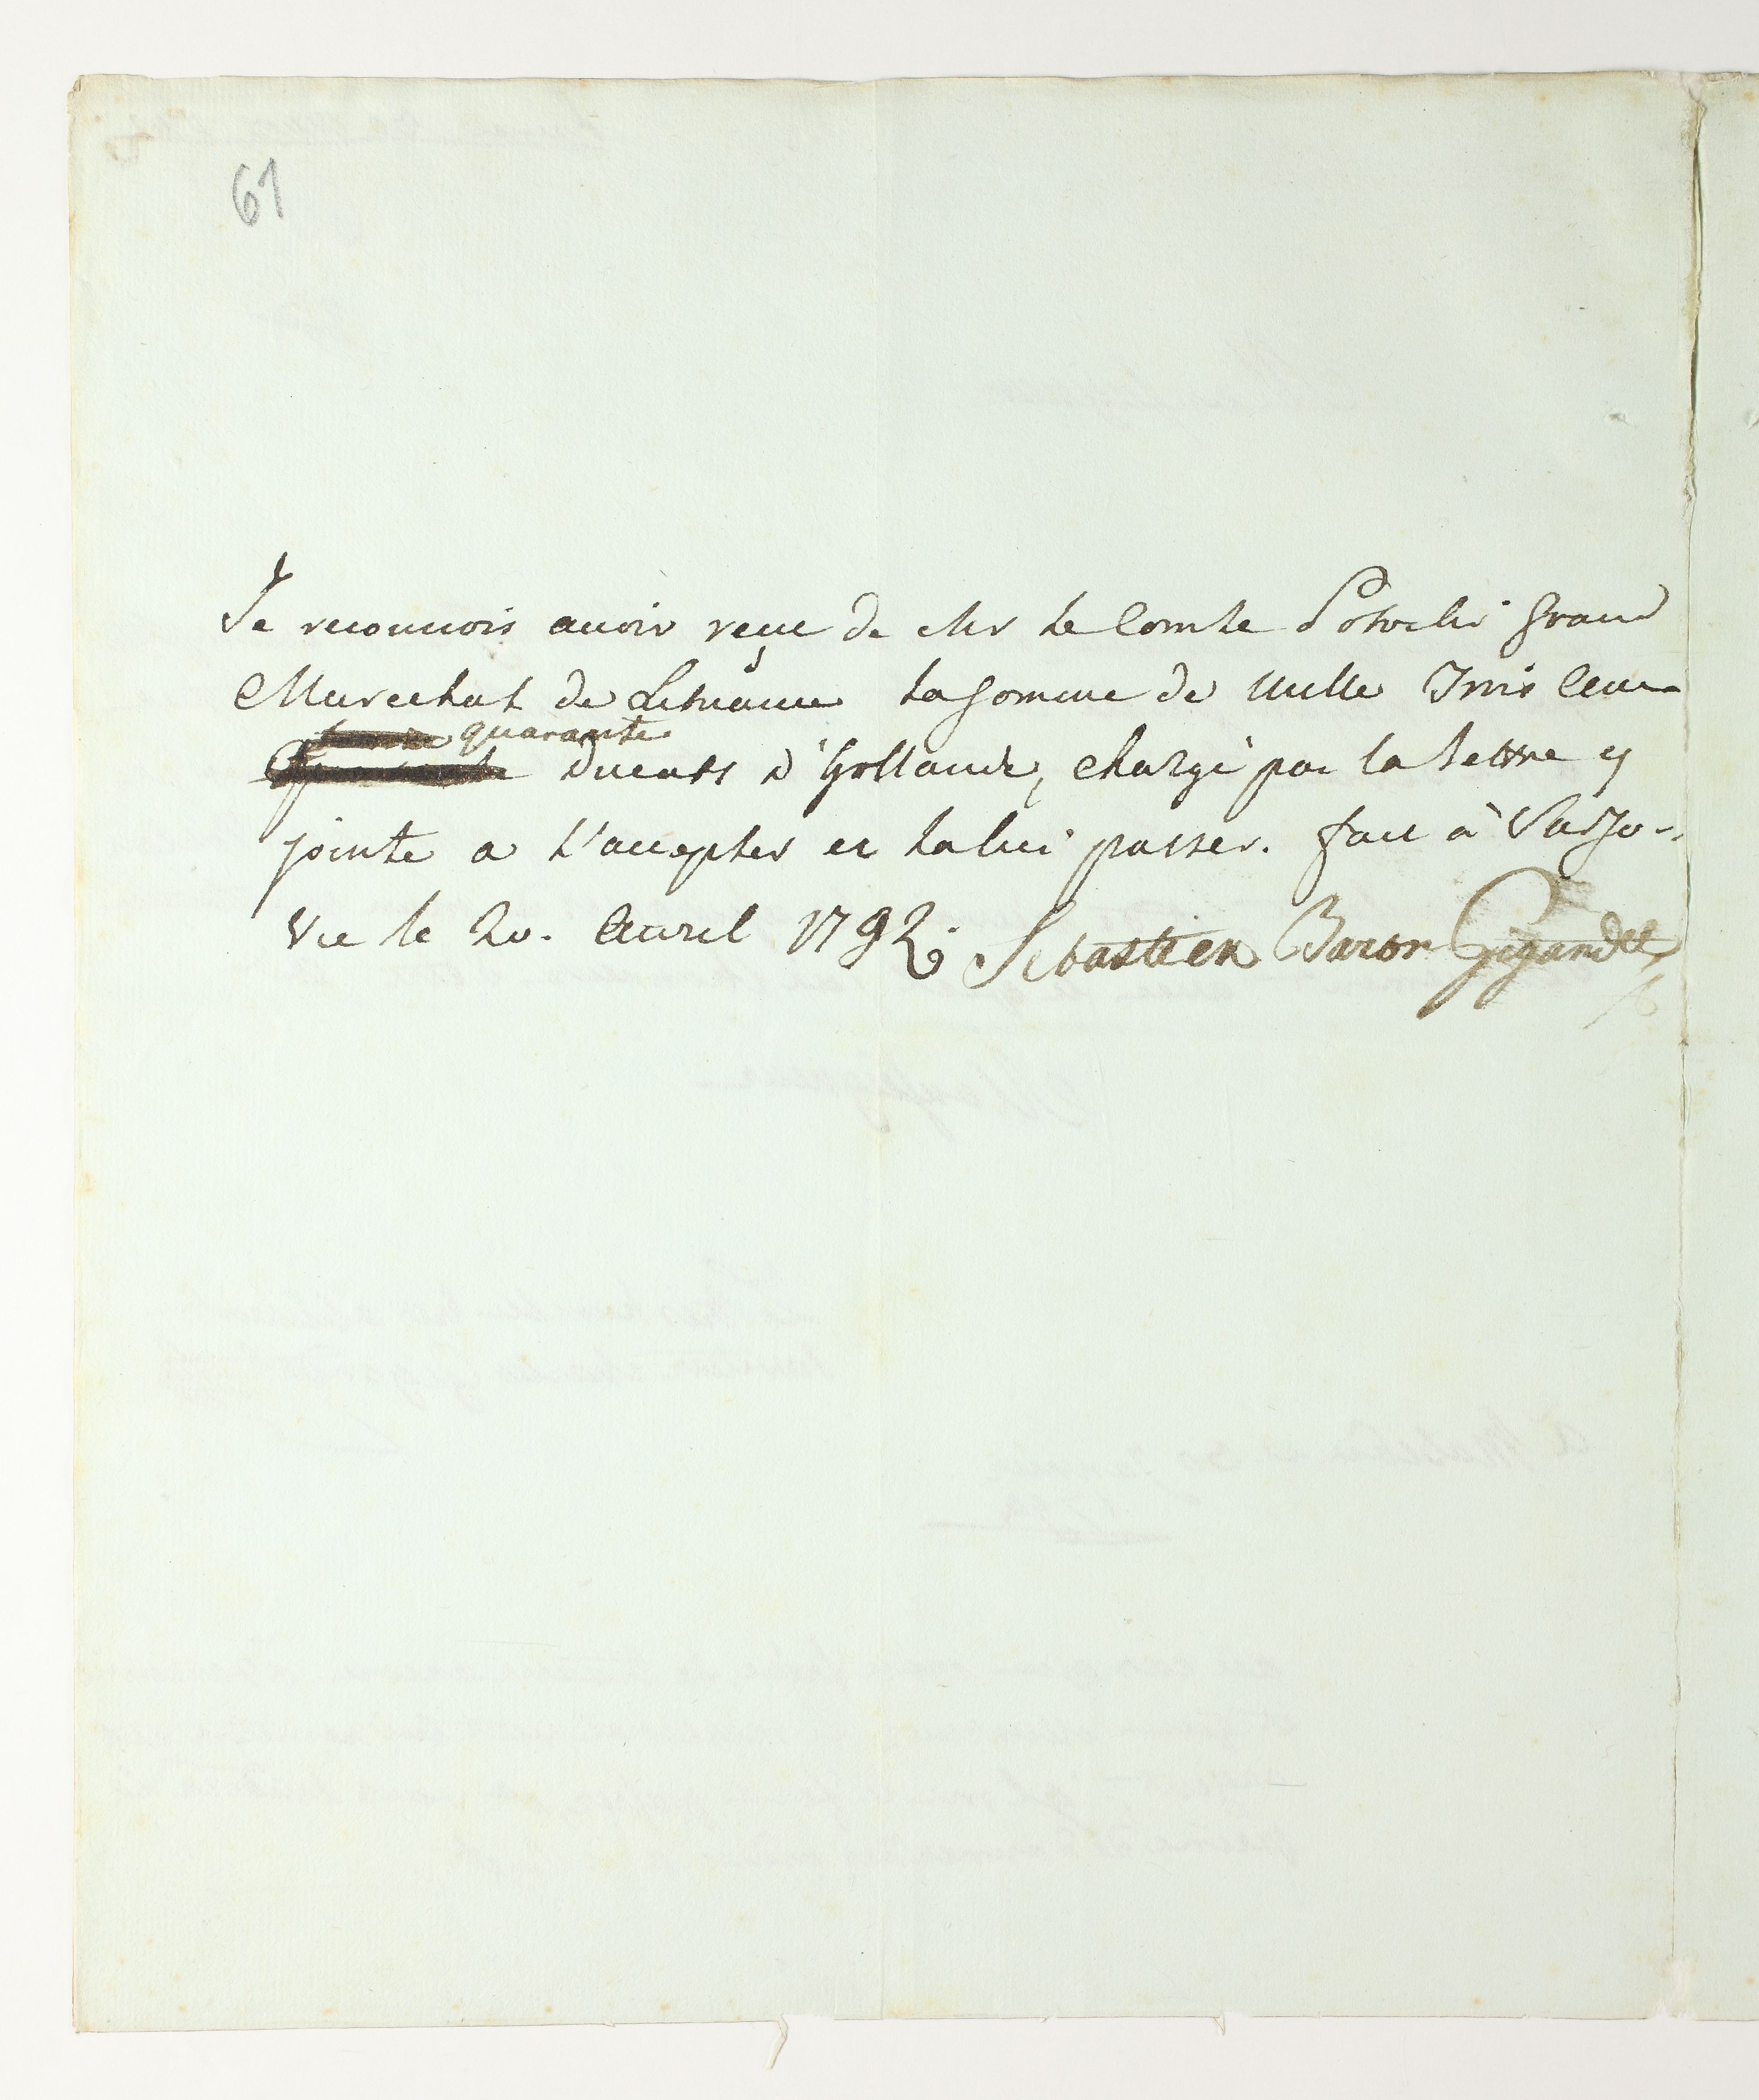 61
Je reconnois avoir reçue de Mr le Comte Potocki Grand
Marechal de Lithuanie la somme de Mille Trois Cent
quarante
Ducats d'Hollande, chargé par la lettre cy
jointe a l'accepter et la lui passer. fait à Varso-
vie le 20. Avril 1792. Sebastien Baron Gigandet